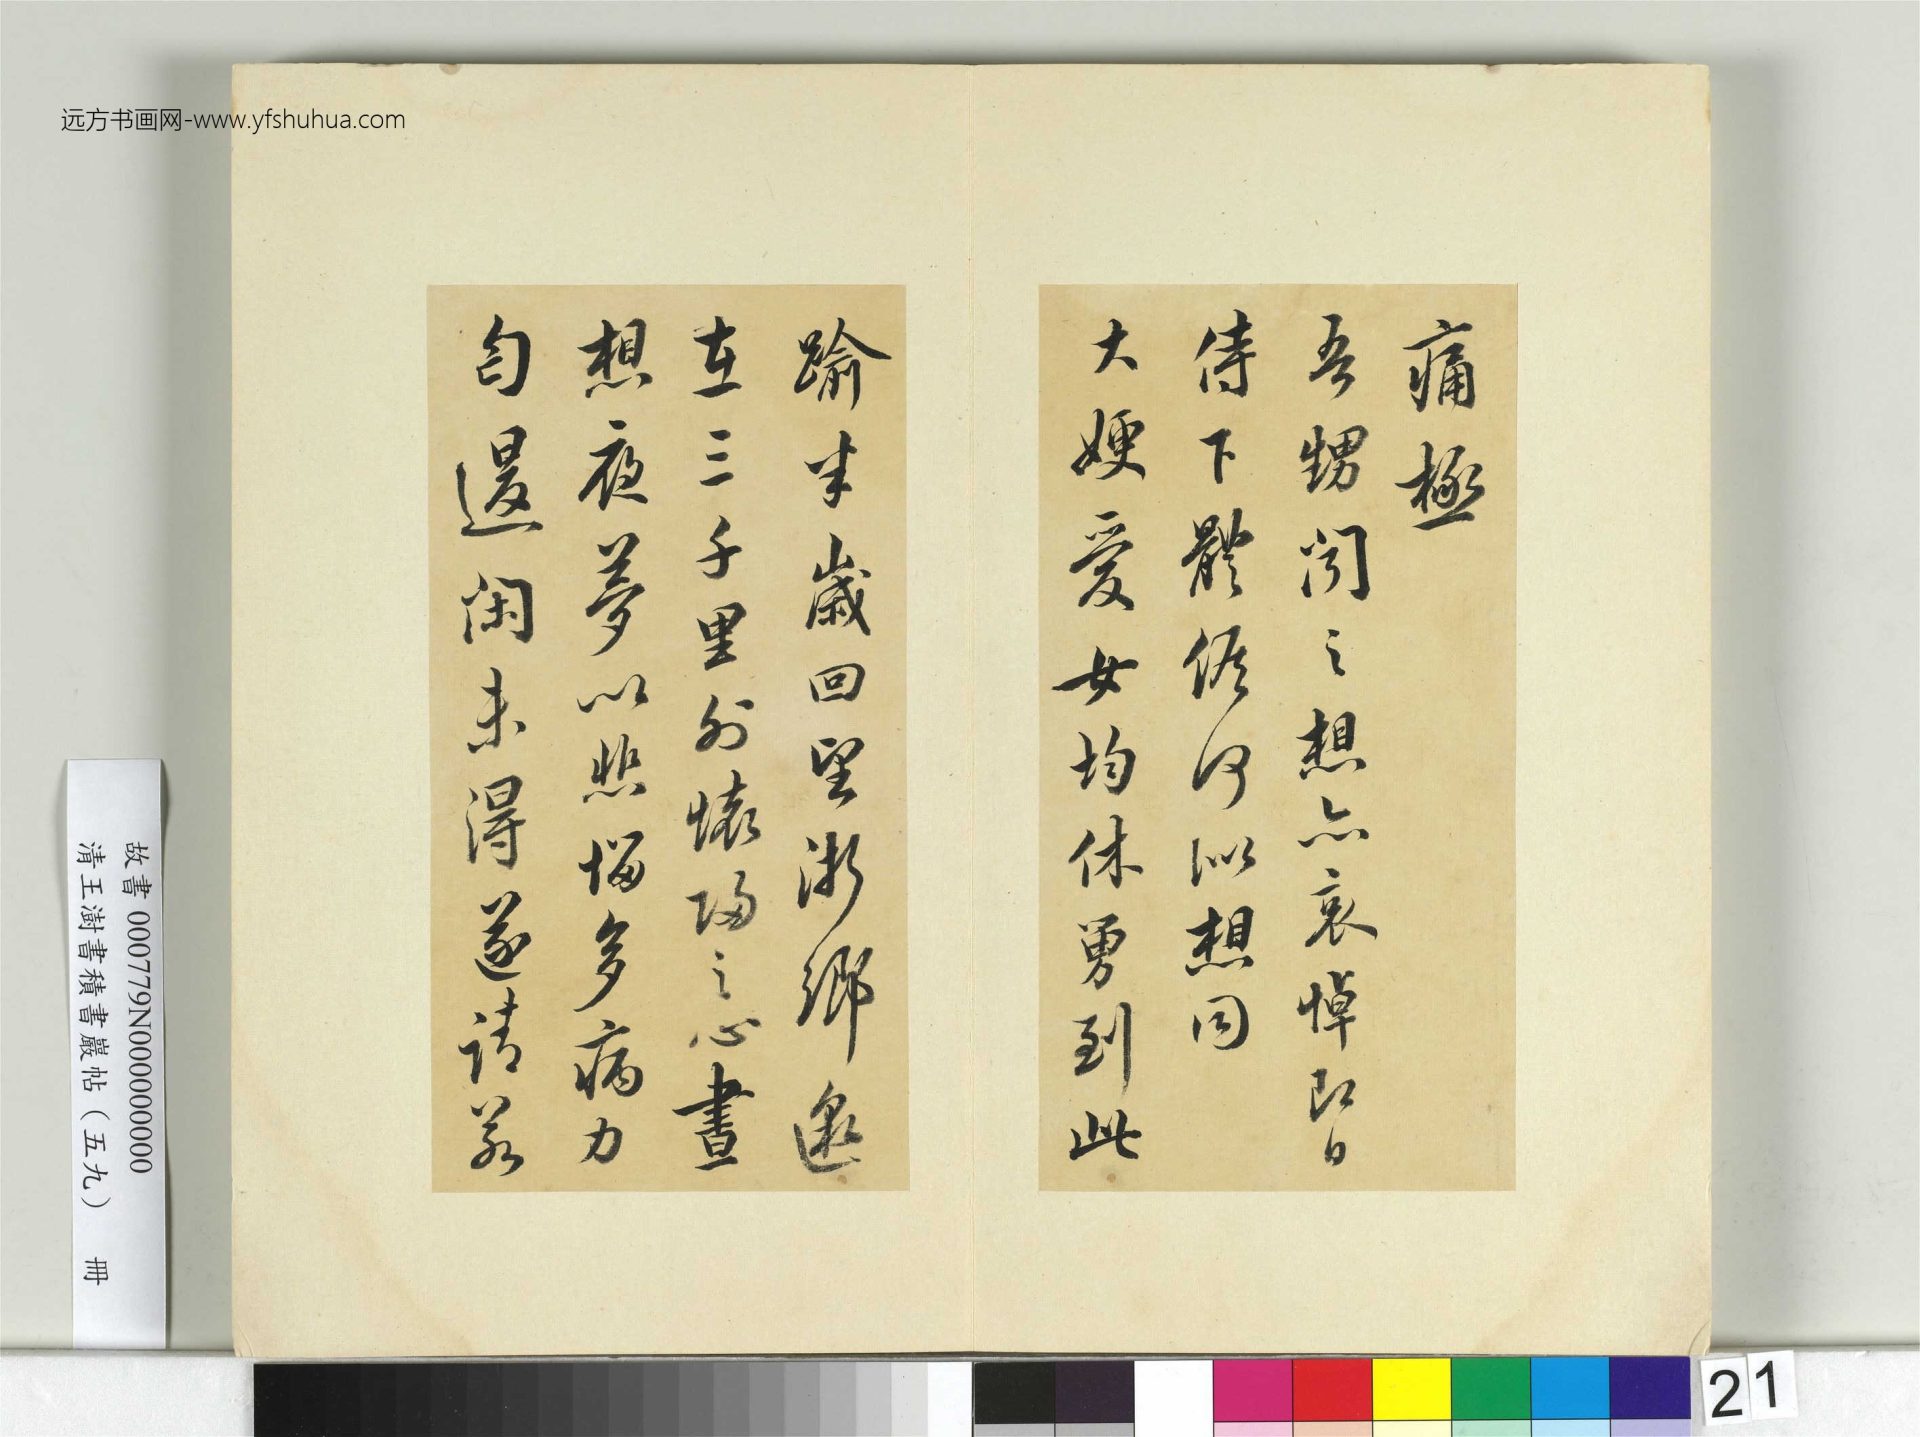 远方书画网-www.yfshuhua.com
痛極
吾甥聞之想亦哀悼即日
侍下體候何似想同
大嫂愛女均休勇到此
踰半歲回望浙鄉邈
在三千里外懷歸之心晝
想夜夢以悲惱多病力
匄退閑未得遂請若
故書 000779N000000000
清王澍書積書巖帖（五九） 冊
21